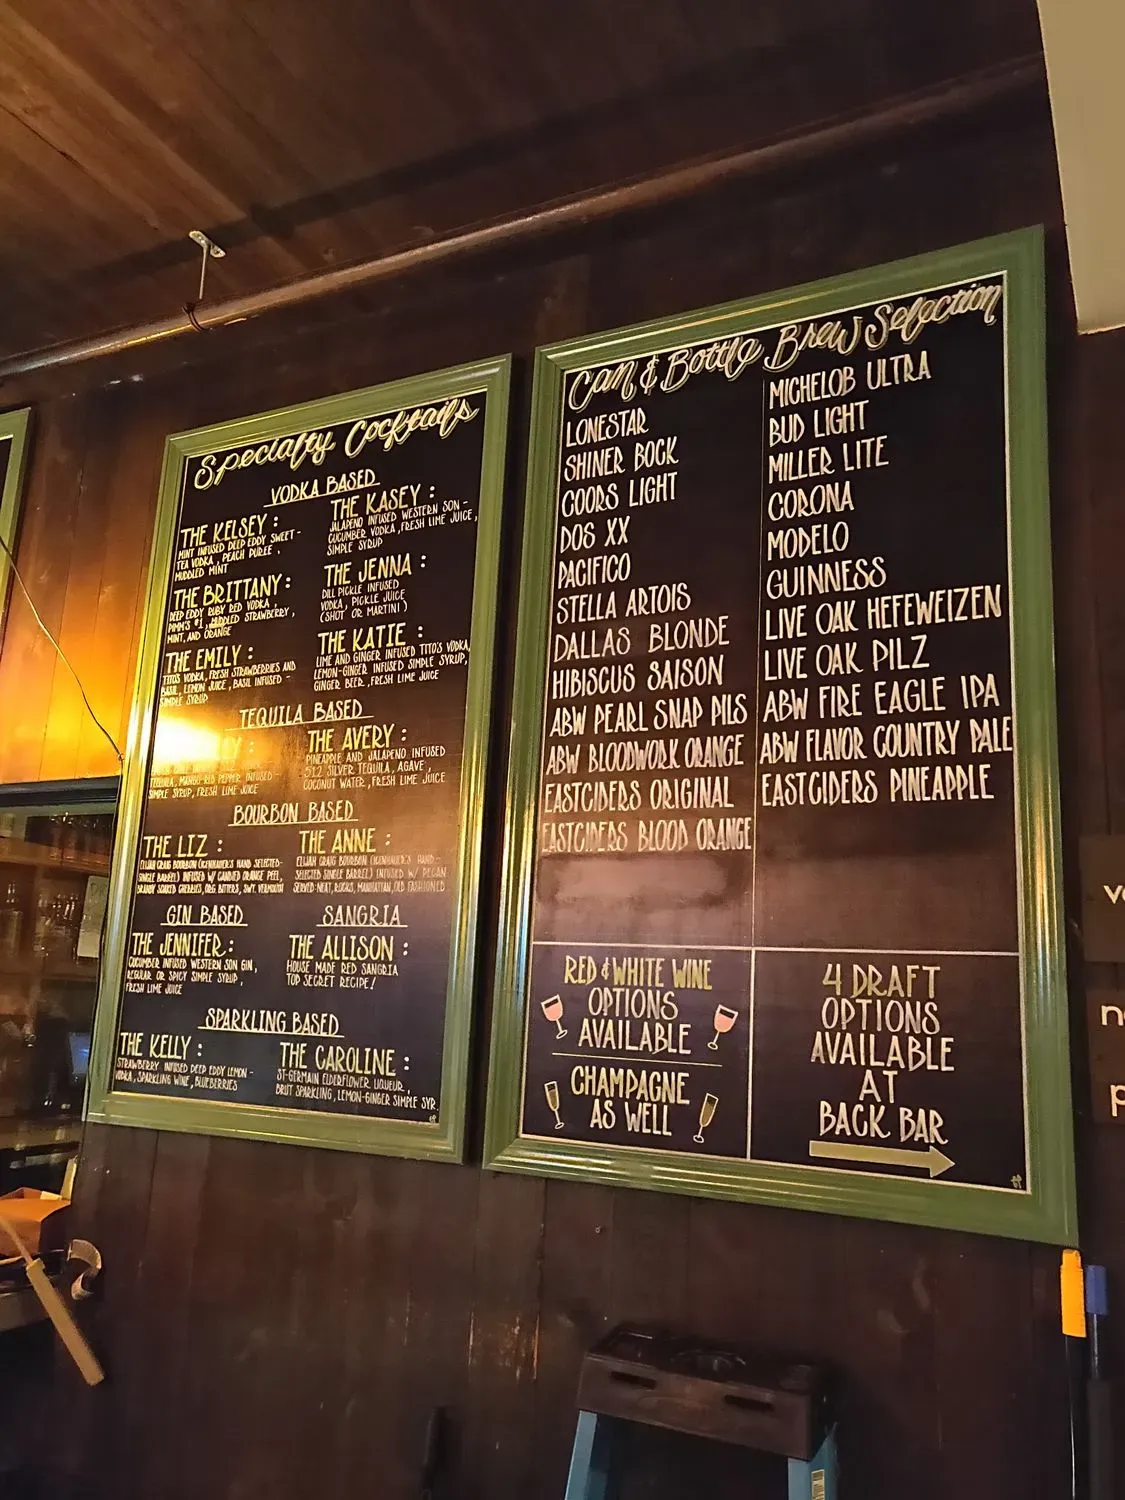 Specialty Cocktails
VODKA BASED
THE KELSEY:
MINT INFUSED DEEP EDDY SWEET-
TEA VODKA, PEACH PUREE,
MUDDLED MINT
THE KASEY:
JALAPENO INFUSED WESTERN SON-
CUCUMBER VODKA, FRESH LIME JUICE,
SIMPLE SYRUP
THE BRITTANY:
DEEP EDDY RUBY RED VODKA,
PIMM'S #1, MUDDLED STRAWBERRY,
MINT, AND ORANGE
THE JENNA:
DILL PICKLE INFUSED
VODKA, PICKLE JUICE
(SHOT OR MARTINI)
THE EMILY:
TITO'S VODKA, FRESH STRAWBERRIES AND
BASIL, LEMON JUICE, BASIL INFUSED-
SIMPLE SYRUP
THE KATIE:
LIME AND GINGER INFUSED TITO'S VODKA,
LEMON-GINGER INFUSED SIMPLE SYRUP,
GINGER BEER, FRESH LIME JUICE
TEQUILA BASED
TEQUILA, MANGO-RED PEPPER INFUSED-
SIMPLE SYRUP, FRESH LIME JUICE
THE AVERY:
PINEAPPLE AND JALAPENO INFUSED
512 SILVER TEQUILA, AGAVE,
COCONUT WATER, FRESH LIME JUICE
BOURBON BASED
THE LIZ:
ELIJAH CRAIG BOURBON (ICENHAUER'S HAND SELECTED-
SINGLE BARREL) INFUSED W/ CANDIED ORANGE PEEL,
BRANDY SOAKED CHERRIES, ORG. BITTERS, SWT. VERMOUTH
THE ANNE:
ELIJAH CRAIG BOURBON (ICENHAUER'S HAND-
SELECTED SINGLE BARREL) INFUSED W/ PECAN
SERVED: NEAT, ROCKS, MANHATTAN, OLD FASHIONED
GIN BASED
THE JENNIFER:
CUCUMBER INFUSED WESTERN SON GIN,
REGULAR OR SPICY SIMPLE SYRUP,
FRESH LIME JUICE
SANGRIA
THE ALLISON:
HOUSE MADE RED SANGRIA
TOP SECRET RECIPE!
SPARKLING BASED
THE KELLY:
STRAWBERRY INFUSED DEEP EDDY LEMON-
VODKA, SPARKLING WINE, BLUEBERRIES
THE CAROLINE:
ST-GERMAIN ELDERFLOWER LIQUEUR,
BRUT SPARKLING, LEMON-GINGER SIMPLE SYR.
Can & Bottle Brew Selection
LONESTAR
SHINER BOCK
COORS LIGHT
DOS XX
PACIFICO
STELLA ARTOIS
DALLAS BLONDE
HIBISCUS SAISON
ABW PEARL SNAP PILS
ABW BLOODWORK ORANGE
EASTCIDERS ORIGINAL
EASTCIDERS BLOOD ORANGE
MICHELOB ULTRA
BUD LIGHT
MILLER LITE
CORONA
MODELO
GUINNESS
LIVE OAK HEFEWEIZEN
LIVE OAK PILZ
ABW FIRE EAGLE IPA
ABW FLAVOR COUNTRY PALE
EASTCIDERS PINEAPPLE
RED & WHITE WINE
OPTIONS
AVAILABLE
CHAMPAGNE
AS WELL
4 DRAFT
OPTIONS
AVAILABLE
AT
BACK BAR